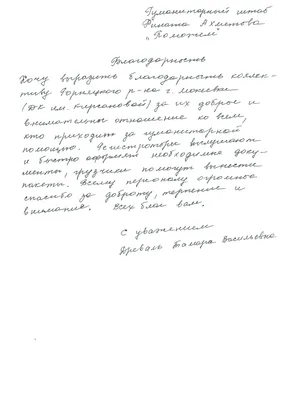 Гуманитарный штаб
Рината Ахметова
„Поможем"
Благодарность
Хочу выразить благодарность коллек-
тиву Горняцкого р-на г. Макеевки
(ДК им. Кирсановой) за их доброе и
внимательны отношение ко всем,
кто приходит за гуманитарной
помощью. Регистраторы выслушают
и быстро оформят необходимые доку-
менты, грузчики помогут вынести
пакеты. Всему персоналу огромное
спасибо за доброту, терпение и
внимание. Всех благ вам.
С уважением
Тамара Васильевна